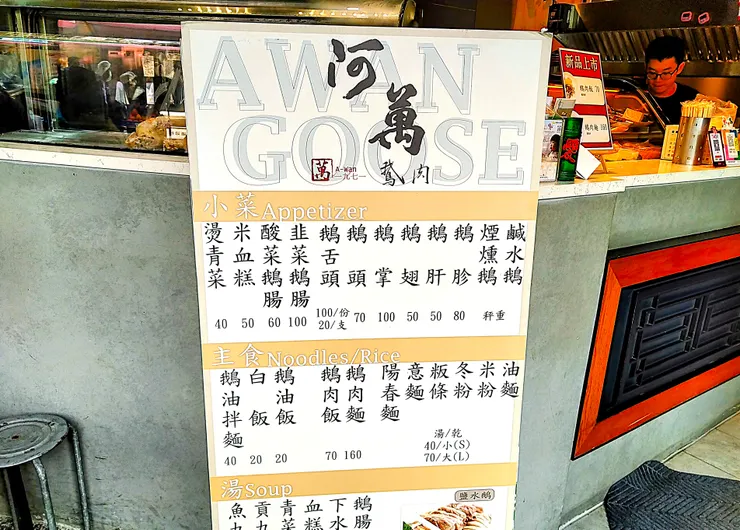 AWAN
GOOSE
阿萬
鵝肉
萬
A-wan
一九七一
小菜Appetizer
燙青菜 40
米血糕 50
酸菜鵝腸 60
韭菜鵝腸 100
鵝舌頭 100/份 20/支
鵝頭 70
鵝掌 100
鵝翅 50
鵝肝 50
鵝胗 80
煙燻鵝
鹹水鵝
秤重
主食Noodles/Rice
鵝油拌麵 40
白飯 20
鵝油飯 20
鵝肉飯 70
鵝肉麵 160
陽春麵
意麵
粄條
冬粉
米粉
油麵
湯/乾
40/小(S)
70/大(L)
湯Soup
魚丸
貢丸
青菜
血糕
下水
鵝腸
鹽水鵝
新品上市
70